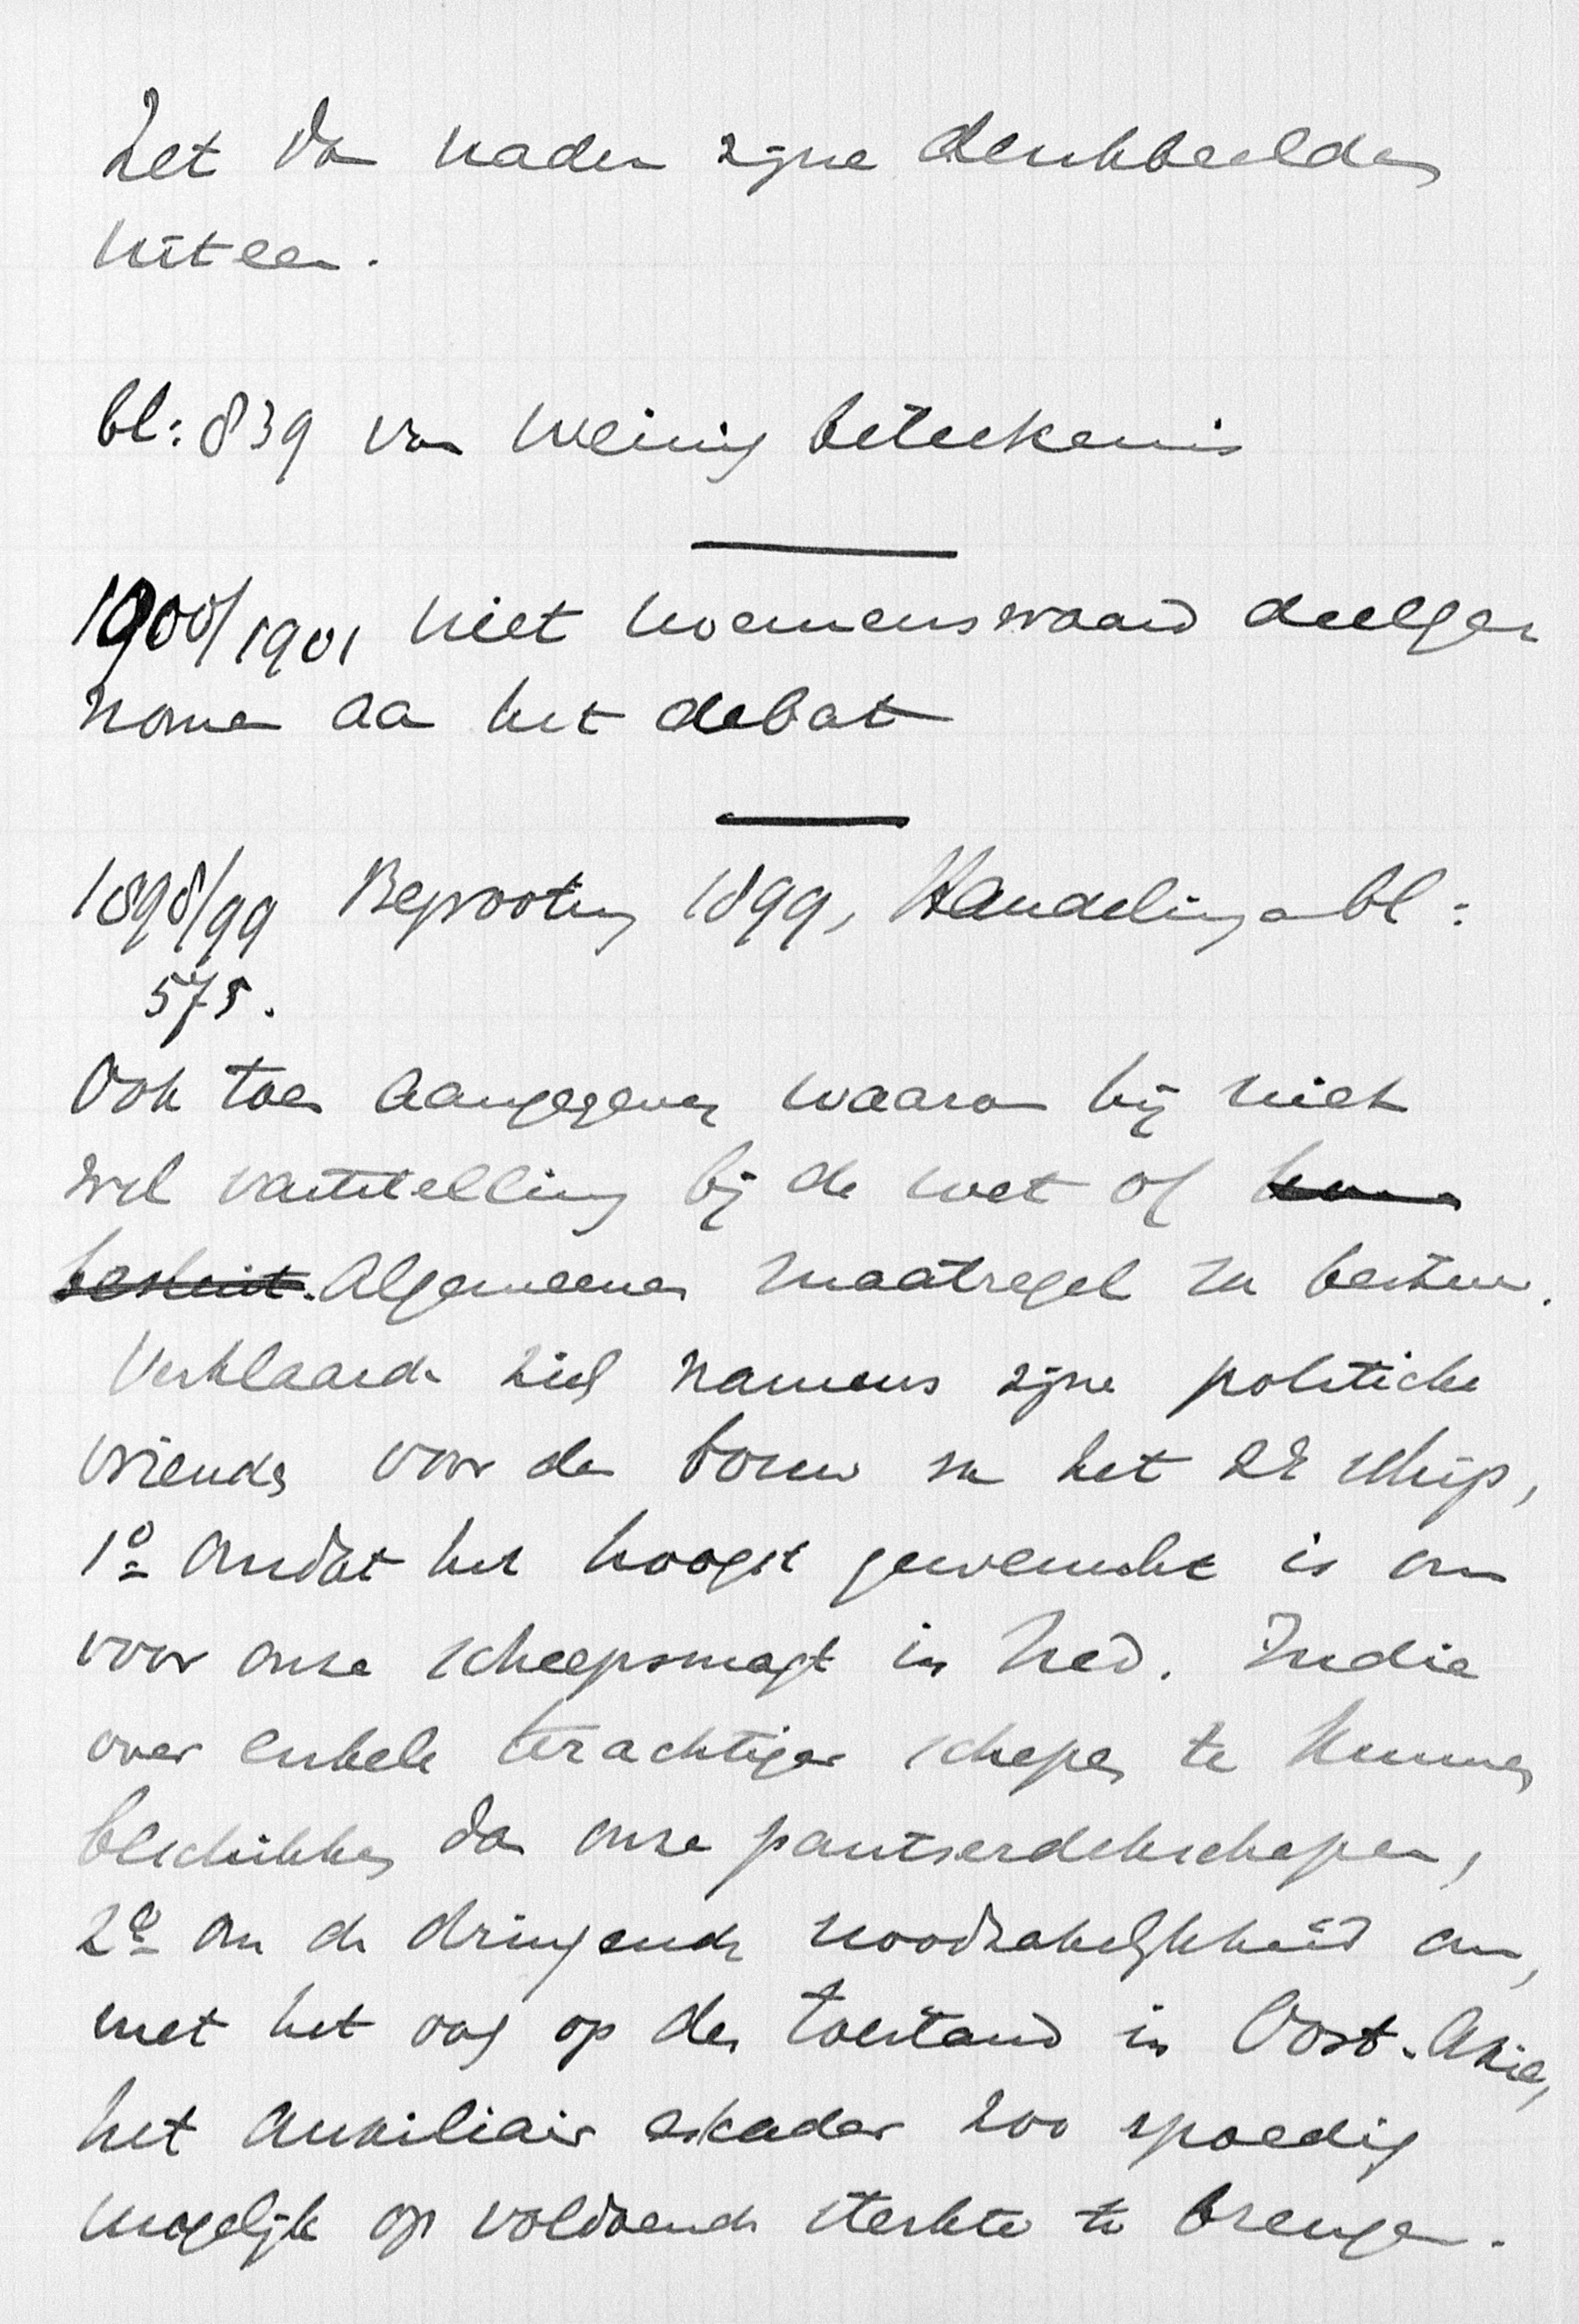 Zet dan nader zijne denkbeelden
uiteen.
bl: 839 van weinig beteekenis
1900/1901 niet noemenswaard deelge
nomen aan het debat
1898/99 Begrooting 1899, Handelingen bl:
575.
Ook toen aangegeven waarom hij niet
wil vaststelling bij de wet of
besluit. Algemeenen maatregel van bestuur.
Verklaarde zich namens zijne politieke
vrienden voor den bouw van het 2e schip,
1o omdat het hoogst gewenscht is om
voor onze scheepsmagt in Ned. Indie
over enkele krachtiger schepen te kunnen
beschikken dan onze pantserdekschepen,
2o om de dringende noodzakelijkheid om,
met het oog op den toestand in Oost-Azie,
het auxiliair eskader zoo spoedig
mogelijk op voldoende sterkte te brengen.